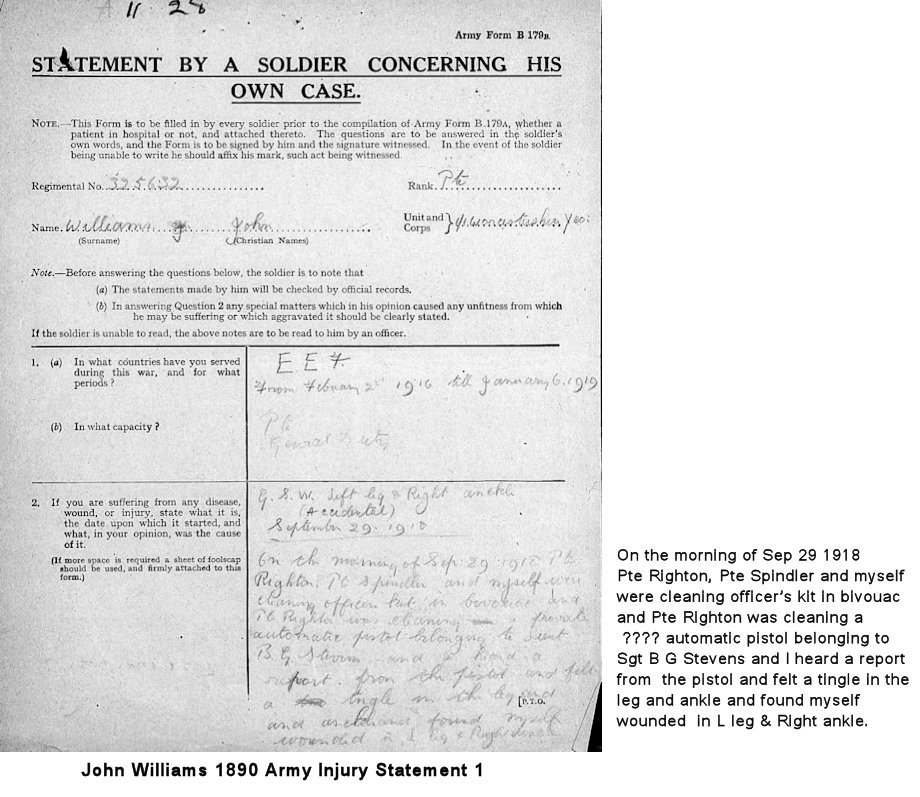 11 28
Army Form B 179B.
STATEMENT BY A SOLDIER CONCERNING HIS
OWN CASE.
NOTE.—This Form is to be filled in by every soldier prior to the compilation of Army Form B.179A, whether a
patient in hospital or not, and attached thereto. The questions are to be answered in the soldier's
own words, and the Form is to be signed by him and the signature witnessed. In the event of the soldier
being unable to write he should affix his mark, such act being witnessed.
Regimental No. 325632
Rank. Pte
Name. Williams J. John
(Surname) (Christian Names)
Unit and
Corps } Worcestershire Yeo:
Note.—Before answering the questions below, the soldier is to note that
(a) The statements made by him will be checked by official records.
(b) In answering Question 2 any special matters which in his opinion caused any unfitness from which
he may be suffering or which aggravated it should be clearly stated.
If the soldier is unable to read, the above notes are to be read to him by an officer.
1. (a) In what countries have you served
during this war, and for what
periods ?
E E F
From February 2nd 1916 till January 6. 1919
(b) In what capacity ?
Pte
General Duty
2. If you are suffering from any disease,
wound, or injury, state what it is,
the date upon which it started, and
what, in your opinion, was the cause
of it.
(If more space is required a sheet of foolscap
should be used, and firmly attached to this
form.)
G. S. W. left leg & Right ankle
(Accidental)
September 29. 1918
On the morning of Sep. 29 1918 Pte
Righton, Pte Spindler and myself were
cleaning officers kit in bivouac and
Pte Righton was cleaning a private
automatic pistol belonging to
B. G. Stevens and I heard a
report from the pistol and felt
a tingle in the leg and
and ankle and found myself
wounded in L leg & Right ankle
[P.T.O.
On the morning of Sep 29 1918
Pte Righton, Pte Spindler and myself
were cleaning officer's kit in bivouac
and Pte Righton was cleaning a
???? automatic pistol belonging to
Sgt B G Stevens and I heard a report
from the pistol and felt a tingle in the
leg and ankle and found myself
wounded in L leg & Right ankle.
John Williams 1890 Army Injury Statement 1